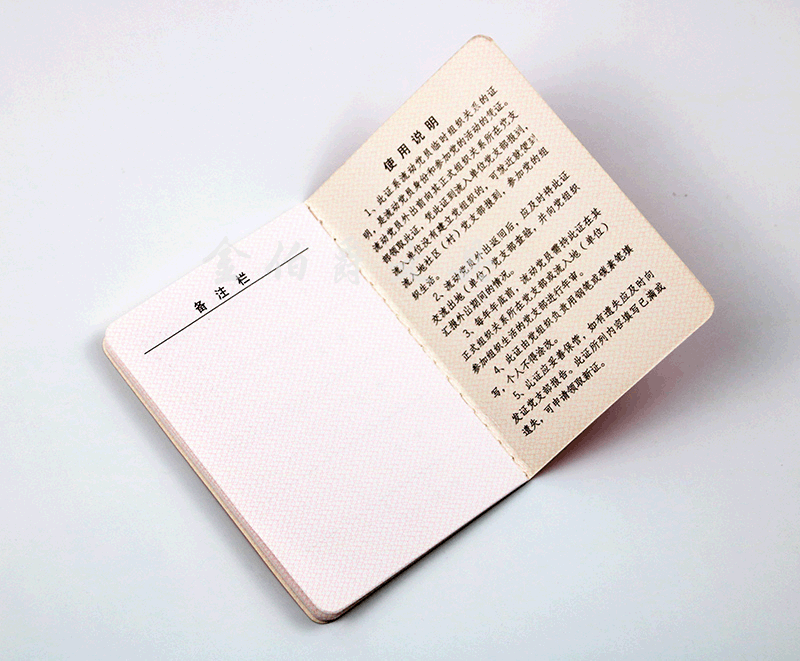 备注栏
使用说明
1、此证系流动党员临时组织关系的证
明，是流动党员身份和参加党的活动的凭证。
流动党员外出前向其正式组织关系所在党支
部领取此证，凭此证到流入单位党支部报到，
流入单位没有建立党组织的，可就近就便到
流入地社区（村）党支部报到，参加党的组
织生活。
2、流动党员外出返回后，应及时将此证
交流出地（单位）党支部查验，并向党组织
汇报外出期间的情况。
3、每年年底前，流动党员需持此证在其
正式组织关系所在党支部或流入地（单位）
参加组织生活的党支部进行年审。
4、此证由党组织负责用钢笔或碳素笔填
写，个人不得涂改。
5、此证应妥善保管，如有遗失应及时向
发证党支部报告。此证所列内容填写已满或
遗失，可申请领取新证。